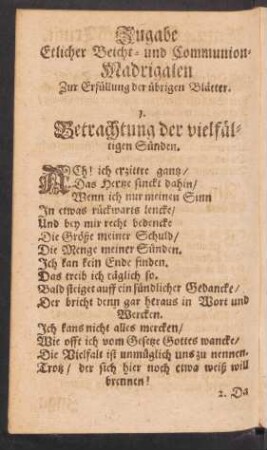 Zugabe
Etlicher Beicht- und Communion-
Madrigalen
Zur Erfüllung der übrigen Blätter.
1.
Betrachtung der vielfäl-
tigen Sünden.
ACh! ich erzittre gantz/
Das Hertze sinckt dahin/
Wenn ich nur meinen Sinn
In etwas rückwarts lencke/
Und bey mir recht bedencke
Die Größe meiner Schuld/
Die Menge meiner Sünden.
Ich kan kein Ende finden.
Das treib ich täglich so.
Bald steiget auff ein sündlicher Gedancke/
Der bricht denn gar heraus in Wort und
Wercken.
Ich kans nicht alles mercken/
Wie offt ich vom Gesetze Gottes wancke/
Die Vielfalt ist unmüglich uns zu nennen.
Trotz/ der sich hier noch etwa weiß will
brennen!
2. Da